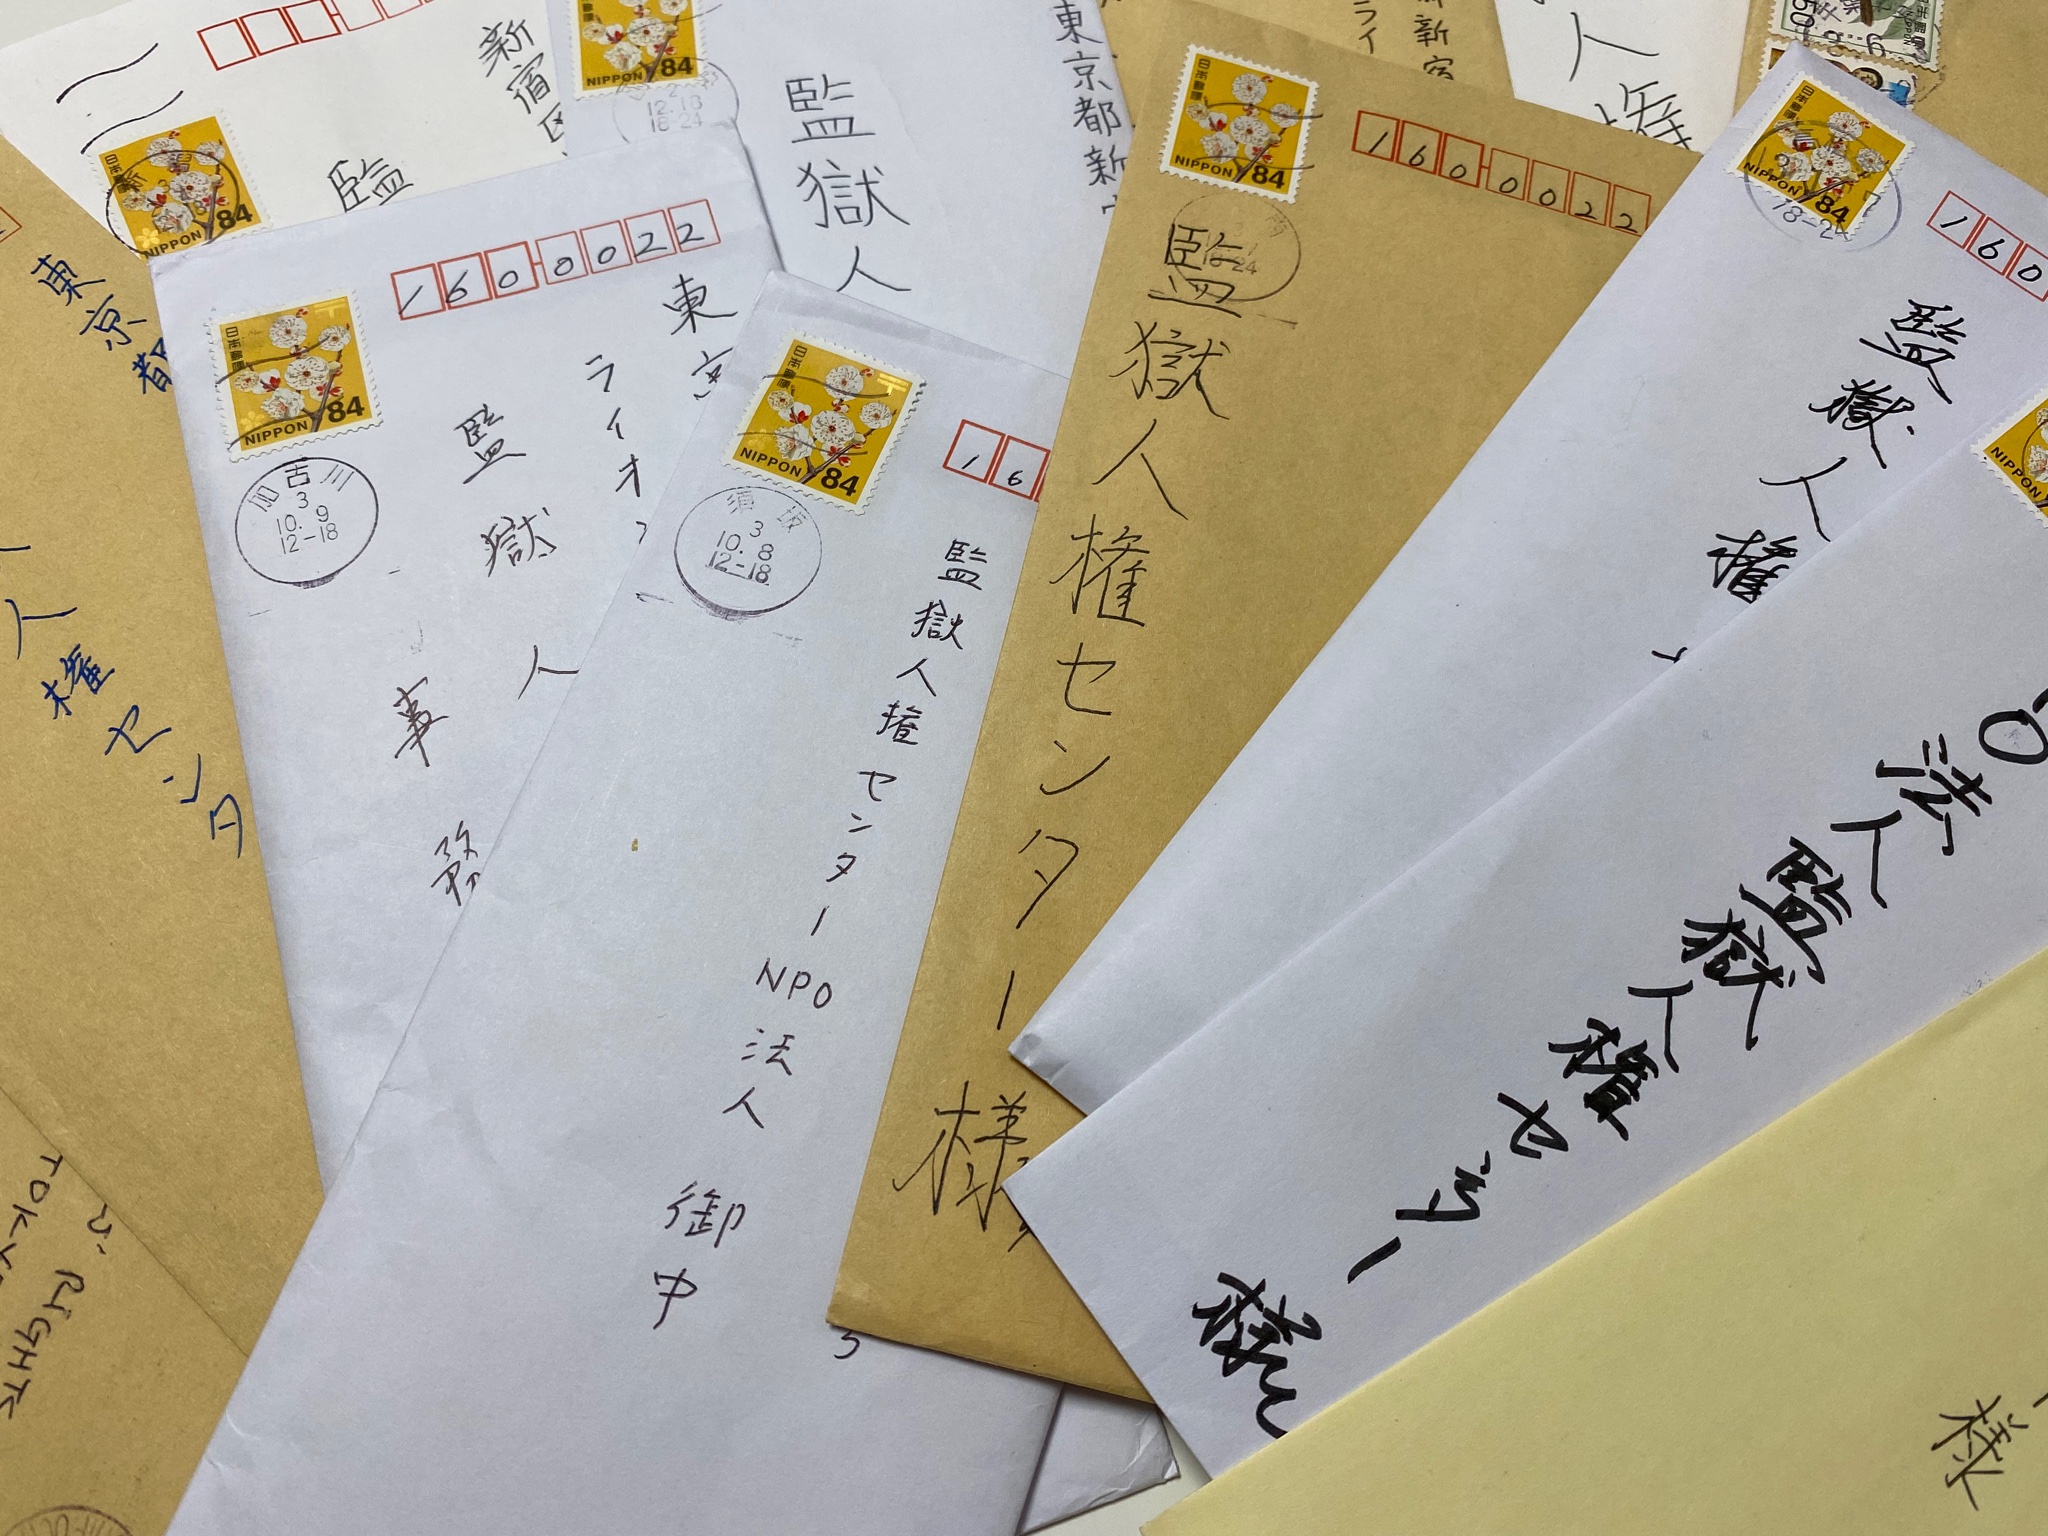 新宿区
監
日本郵便
NIPPON 84
NIPPON 84
12.18
18-24
監獄人
東京都新
ライ
新宿
人権
日本郵便
NIPPON 84
160-0022
監獄人権センター
様
日本郵便
NIPPON 84
18-24
160
監獄人権
NIPPON
東京都
人権センタ
160-0022
日本郵便
NIPPON 84
加古川
3
10.9
12-18
東京
ライオ
監獄人
事務
日本郵便
NIPPON 84
須坂
3
10.8
12-18
16
監獄人権センターNPO法人
御中
法人監獄人権センター
様
様
RIGHTS
TOKY